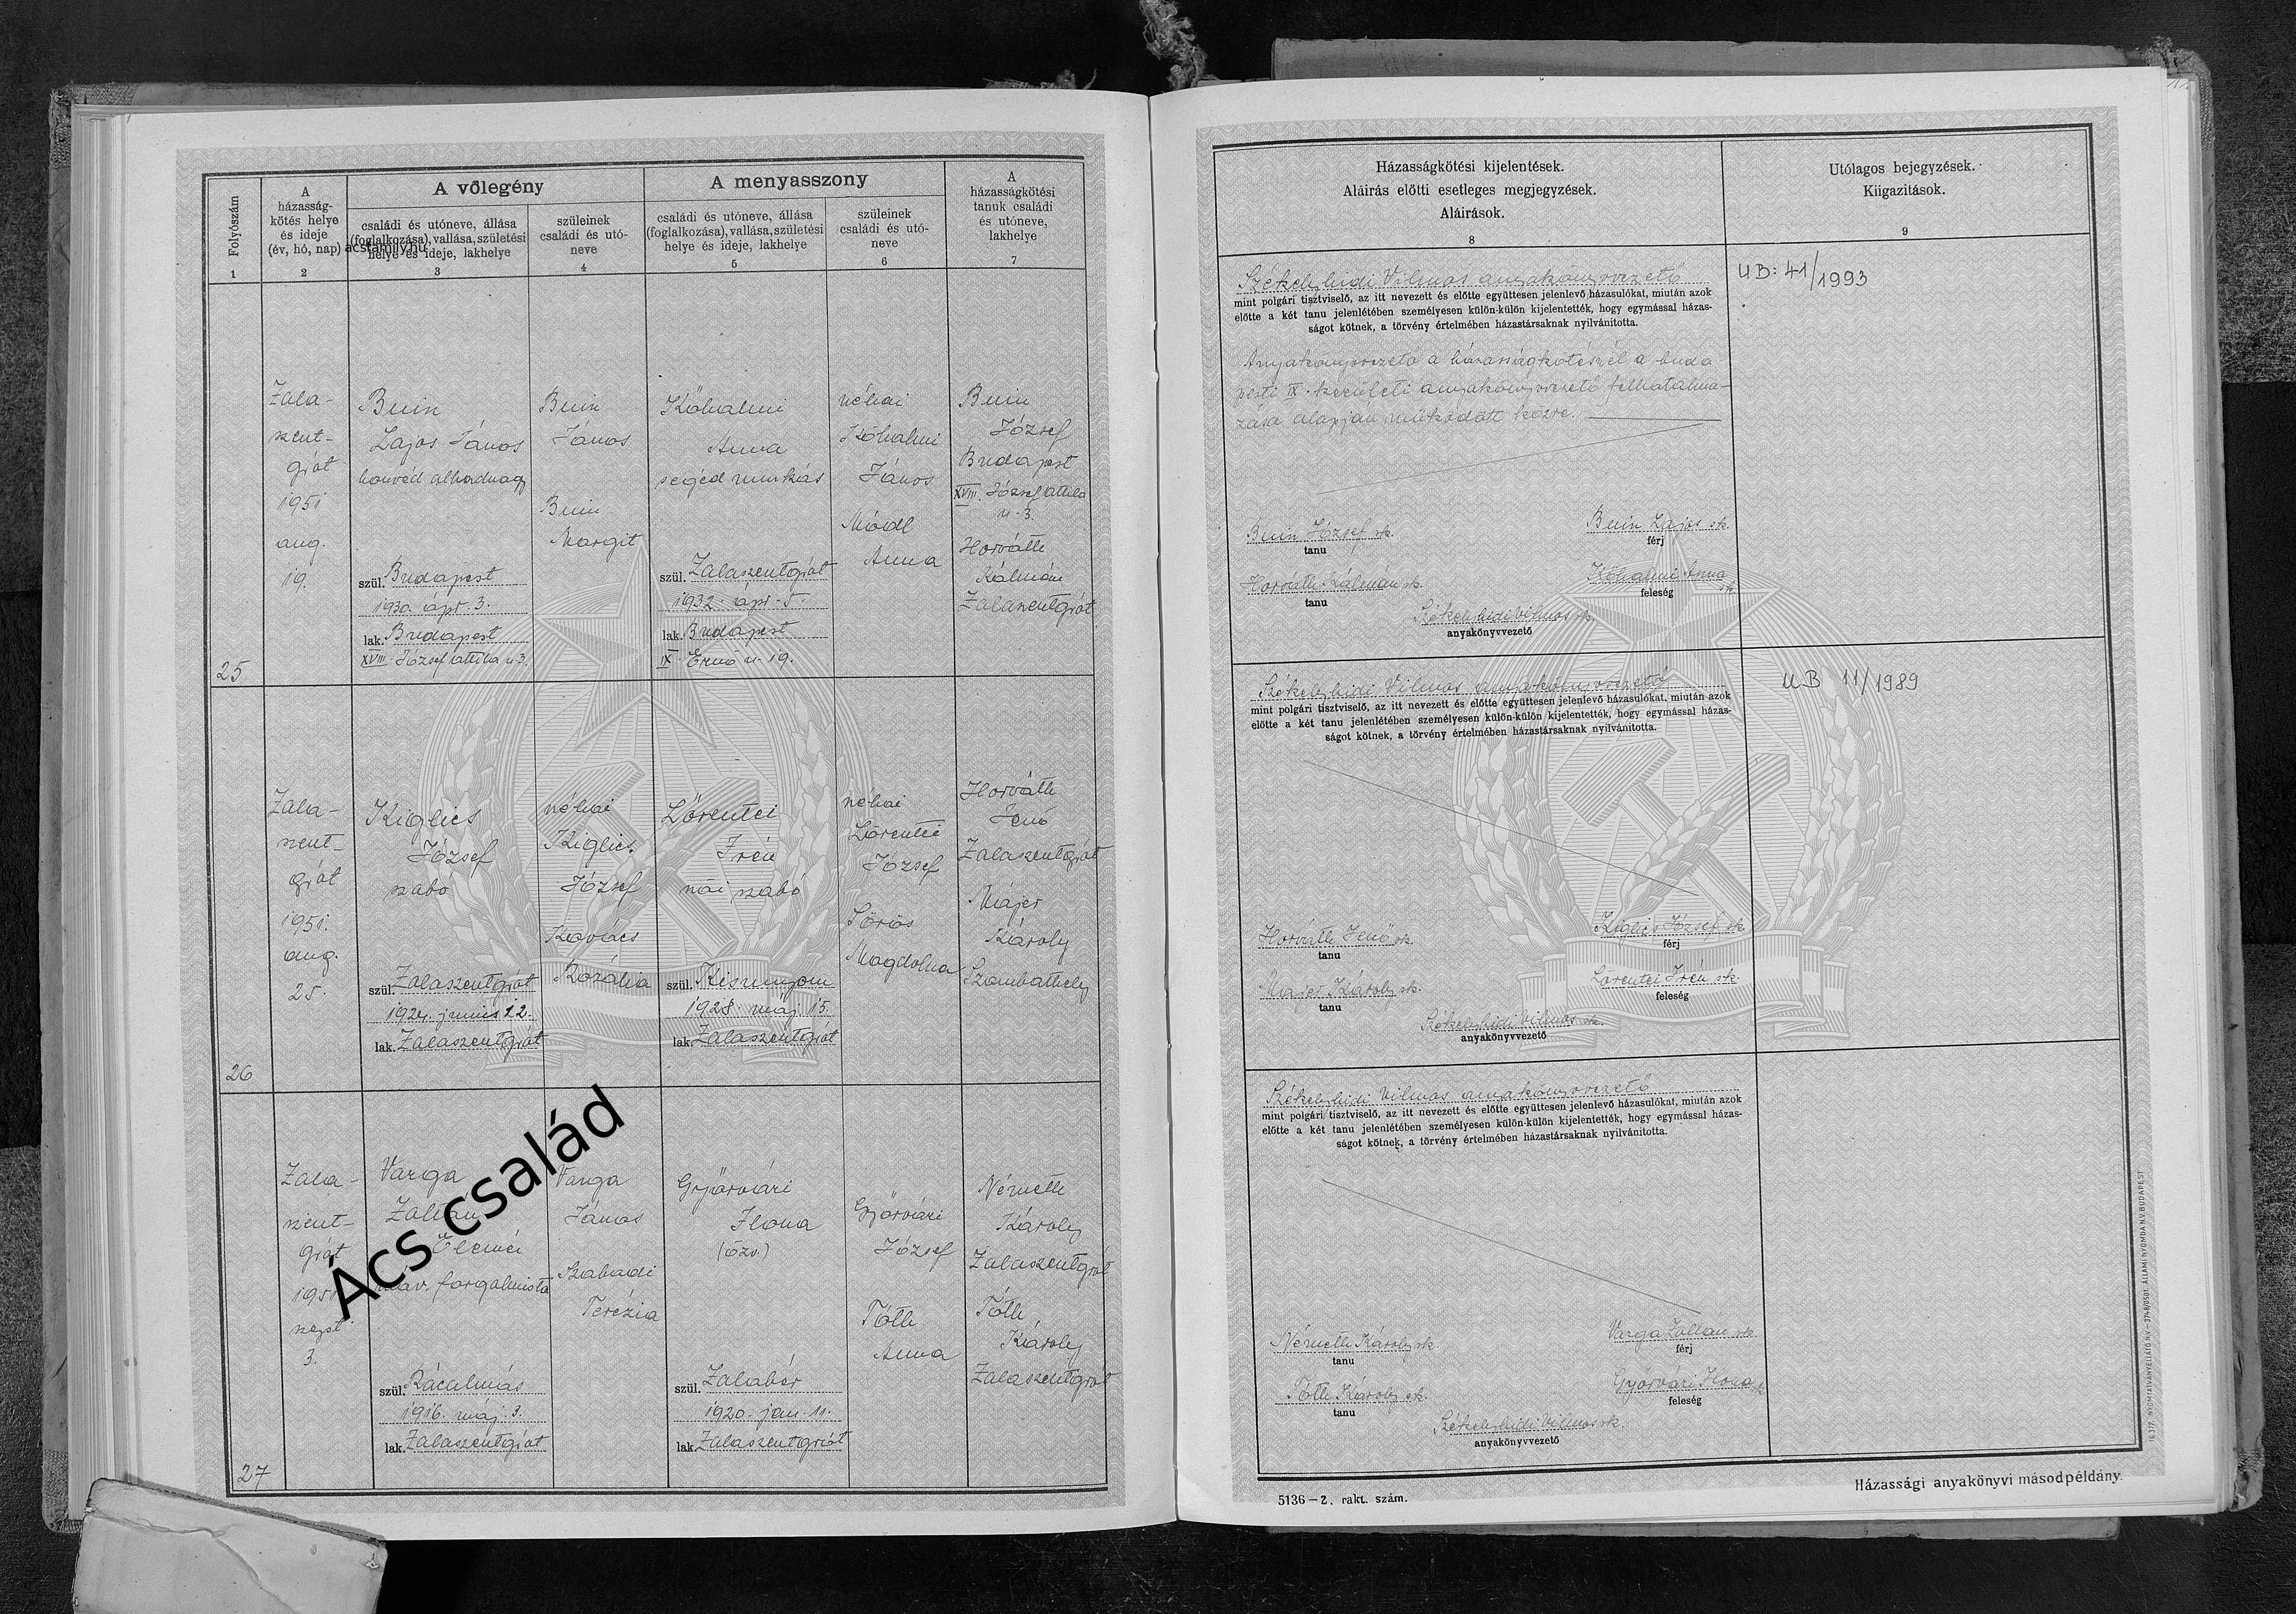 Folyószám
1
A
házasság-
kötés helye
és ideje
(év, hó, nap)
2
A vőlegény
családi és utóneve, állása
(foglalkozása), vallása, születési
helye és ideje, lakhelye
3
szüleinek
családi és utó-
neve
4
A menyasszony
családi és utóneve, állása
(foglalkozása), vallása, születési
helye és ideje, lakhelye
5
szüleinek
családi és utó-
neve
6
A
házasságkötési
tanuk családi
és utóneve,
lakhelye
7
acsfamily.hu
25
Zala-
szent-
grót
1951
aug.
19.
Lajos János
honvéd alhadnagy
szül. Budapest
1930. ápr. 3.
lak. Budapest
XVIII. József Attila u 3.
János
Margit
Kőhalmi
Anna
segéd munkás
szül. Zalaszentgrót
1932. ápr. 5.
lak. Budapest
IX. Ernő u. 19.
néhai
Kőhalmi
János
Módl
Anna
József
Budapest
XVIII. József Attila
u. 3.
Horváth
Kálmán
Zalaszentgrót
26
Zala-
szent-
grót
1951.
aug.
25.
Kiglics
József
szabó
szül. Zalaszentgrót
1924. junius 12.
lak. Zalaszentgrót
néhai
Kiglics
József
Kovács
Rozália
Lőrentei
Irén
női szabó
szül. Kisunyom
1928. máj 15.
lak. Zalaszentgrót
néhai
Lőrentei
József
Sörös
Magdolna
Horváth
Jenő
Zalaszentgrót
Májer
Károly
Szombathely
27
Zala-
szent-
grót
1951
szept
3.
Varga
Zoltán
Elemér
máv. forgalmista
szül. Rácalmás
1916. máj. 3.
lak. Zalaszentgrót
Varga
János
Szabadi
Terézia
Győrvári
Ilona
(özv.)
szül. Zalabér
1920. jan. 11.
lak. Zalaszentgrót
Győrvári
József
Tóth
Anna
Németh
Károly
Zalaszentgrót
Tóth
Károly
Zalaszentgrót
Ács család
Házasságkötési kijelentések.
Aláirás előtti esetleges megjegyzések.
Aláirások.
8
Utólagos bejegyzések.
Kiigazitások.
9
Székelyhidi Vilmos anyakönyvvezető
mint polgári tisztviselő, az itt nevezett és előtte együttesen jelenlevő házasulókat, miután azok
előtte a két tanu jelenlétében személyesen külön-külön kijelentették, hogy egymással házas-
ságot kötnek, a törvény értelmében házastársaknak nyilvánitotta.
UB: 41/1993
Anyakönyvvezető a házasságkötésnél a buda
pesti IX. kerületi anyakönyvvezető felhatalma-
zása alapján működött közre.
József sk.
tanu
Lajos sk.
férj
Horváth Kálmán sk.
tanu
Kőhalmi Anna
sk.
feleség
Székelyhidi Vilmos sk.
anyakönyvvezető
Székelyhidi Vilmos anyakönyvvezető
mint polgári tisztviselő, az itt nevezett és előtte együttesen jelenlevő házasulókat, miután azok
előtte a két tanu jelenlétében személyesen külön-külön kijelentették, hogy egymással házas-
ságot kötnek, a törvény értelmében házastársaknak nyilvánitotta.
UB 11/1989
Horváth Jenő sk.
tanu
Kiglics József sk.
férj
Májer Károly sk.
tanu
Lőrentei Irén sk.
feleség
Székelyhidi Vilmos sk.
anyakönyvvezető
Székelyhidi Vilmos anyakönyvvezető
mint polgári tisztviselő, az itt nevezett és előtte együttesen jelenlevő házasulókat, miután azok
előtte a két tanu jelenlétében személyesen külön-külön kijelentették, hogy egymással házas-
ságot kötnek, a törvény értelmében házastársaknak nyilvánitotta.
Németh Károly sk.
tanu
Varga Zoltán sk.
férj
Tóth Károly sk.
tanu
Győrvári Ilona sk
feleség
Székelyhidi Vilmos sk.
anyakönyvvezető
5136 — 2. rakt. szám.
Házassági anyakönyvi másodpéldány.